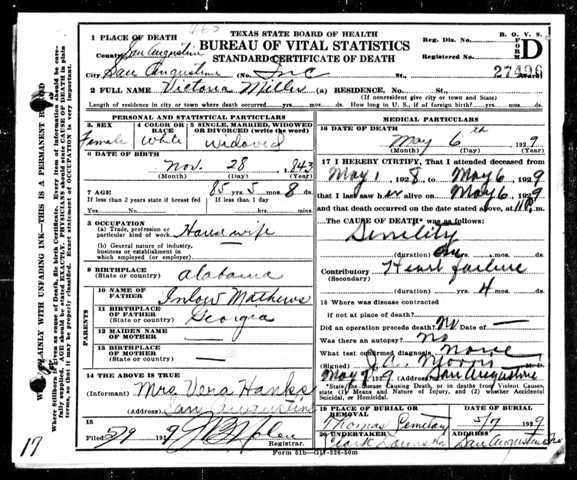 TEXAS STATE BOARD OF HEALTH
BUREAU OF VITAL STATISTICS
STANDARD CERTIFICATE OF DEATH
B. O. V. S.
FORM D
Reg. Dis. No.
Registered No. 27496
1 PLACE OF DEATH
County San Augustine
City San Augustine (No. Inc St., Ward)
2 FULL NAME Victoria Miller (a) RESIDENCE. No. St.,
(If nonresident give city or town and State)
Length of residence in city or town where death occurred yrs. mos. ds. How long in U. S., if of foreign birth? yrs. mos. ds.
PERSONAL AND STATISTICAL PARTICULARS
3. SEX
Female
4 COLOR OR RACE
White
5 SINGLE, MARRIED, WIDOWED OR DIVORCED (write the word)
widowed
6 DATE OF BIRTH
Nov. 28 1843
(Month) (Day) (Year)
7 AGE 85 yrs. 5 mos. 8 ds.
If less than 2 years state if breast fed
If less than 1 day
Yes No hrs. min.
8 OCCUPATION
(a) Trade, profession or particular kind of work House wife
(b) General nature of industry, business or establishment in which employed (or employer)
9 BIRTHPLACE
(State or country) Alabama
PARENTS
10 NAME OF FATHER Inlow Mathews
11 BIRTHPLACE OF FATHER
(State or country) Georgia
12 MAIDEN NAME OF MOTHER —
13 BIRTHPLACE OF MOTHER
(State or country) —
14 THE ABOVE IS TRUE
(Informant) Mrs Vera Hanks
(Address) San Augustine
15
Filed 5/9 1929
Registrar.
MEDICAL PARTICULARS
16 DATE OF DEATH
May 6th 1929
(Month) (Day) (Year)
17 I HEREBY CERTIFY, That I attended deceased from
May 1 1928, to May 6, 1929
that I last saw her alive on May 6 1929
and that death occurred on the date stated above, at m.
The CAUSE OF DEATH was as follows:
Senility
(duration) yrs. mos. ds.
Contributory Heart failure
(Secondary)
(duration) yrs. 4 mos. ds.
18 Where was disease contracted
if not at place of death?
Did an operation precede death? No Date of —
Was there an autopsy? No
What test confirmed diagnosis None
(Signed)
May 9, 1929 (Address) San Augustine
State the Disease Causing Death, or in deaths from Violent Causes, state (1) Means and Nature of Injury, and (2) whether Accidental, Suicidal, or Homicidal.
19 PLACE OF BURIAL OR REMOVAL
Thomas Cemetery
DATE OF BURIAL
5/7 1929
20 UNDERTAKER
ADDRESS
San Augustine
17